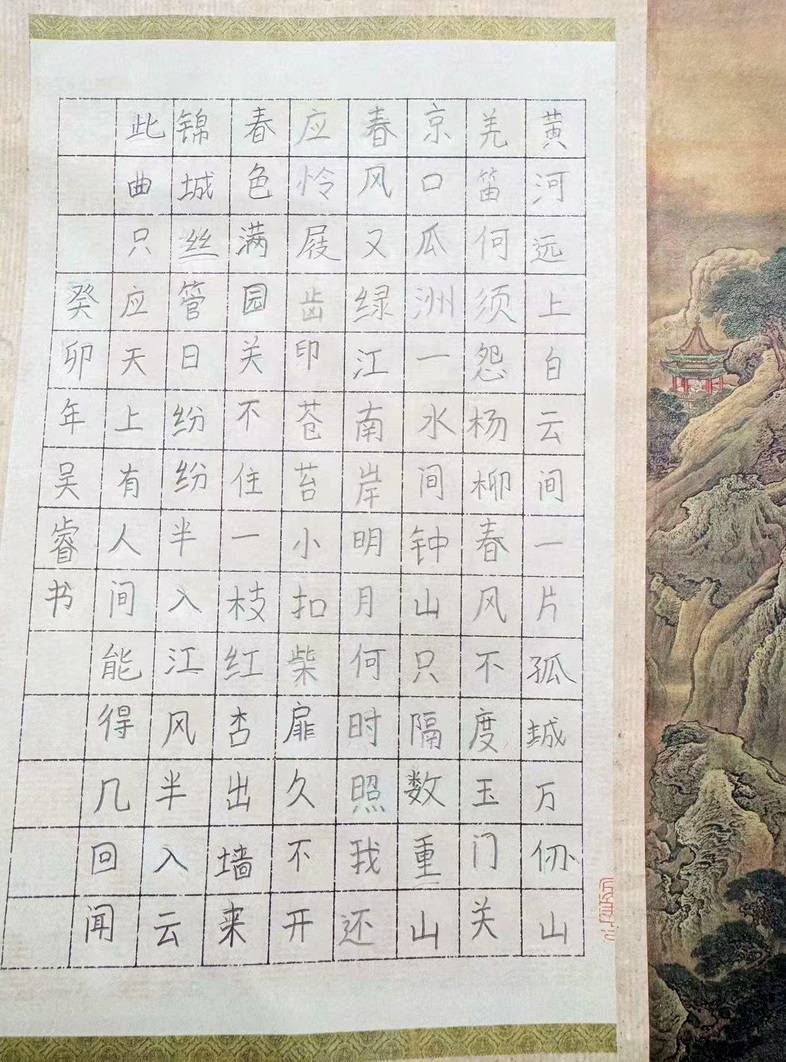 黄河远上白云间一片孤城万仞山
羌笛何须怨杨柳春风不度玉门关
京口瓜洲一水间钟山只隔数重山
春风又绿江南岸明月何时照我还
应怜屐齿印苍苔小扣柴扉久不开
春色满园关不住一枝红杏出墙来
锦城丝管日纷纷半入江风半入云
此曲只应天上有人间能得几回闻
癸卯年吴睿书